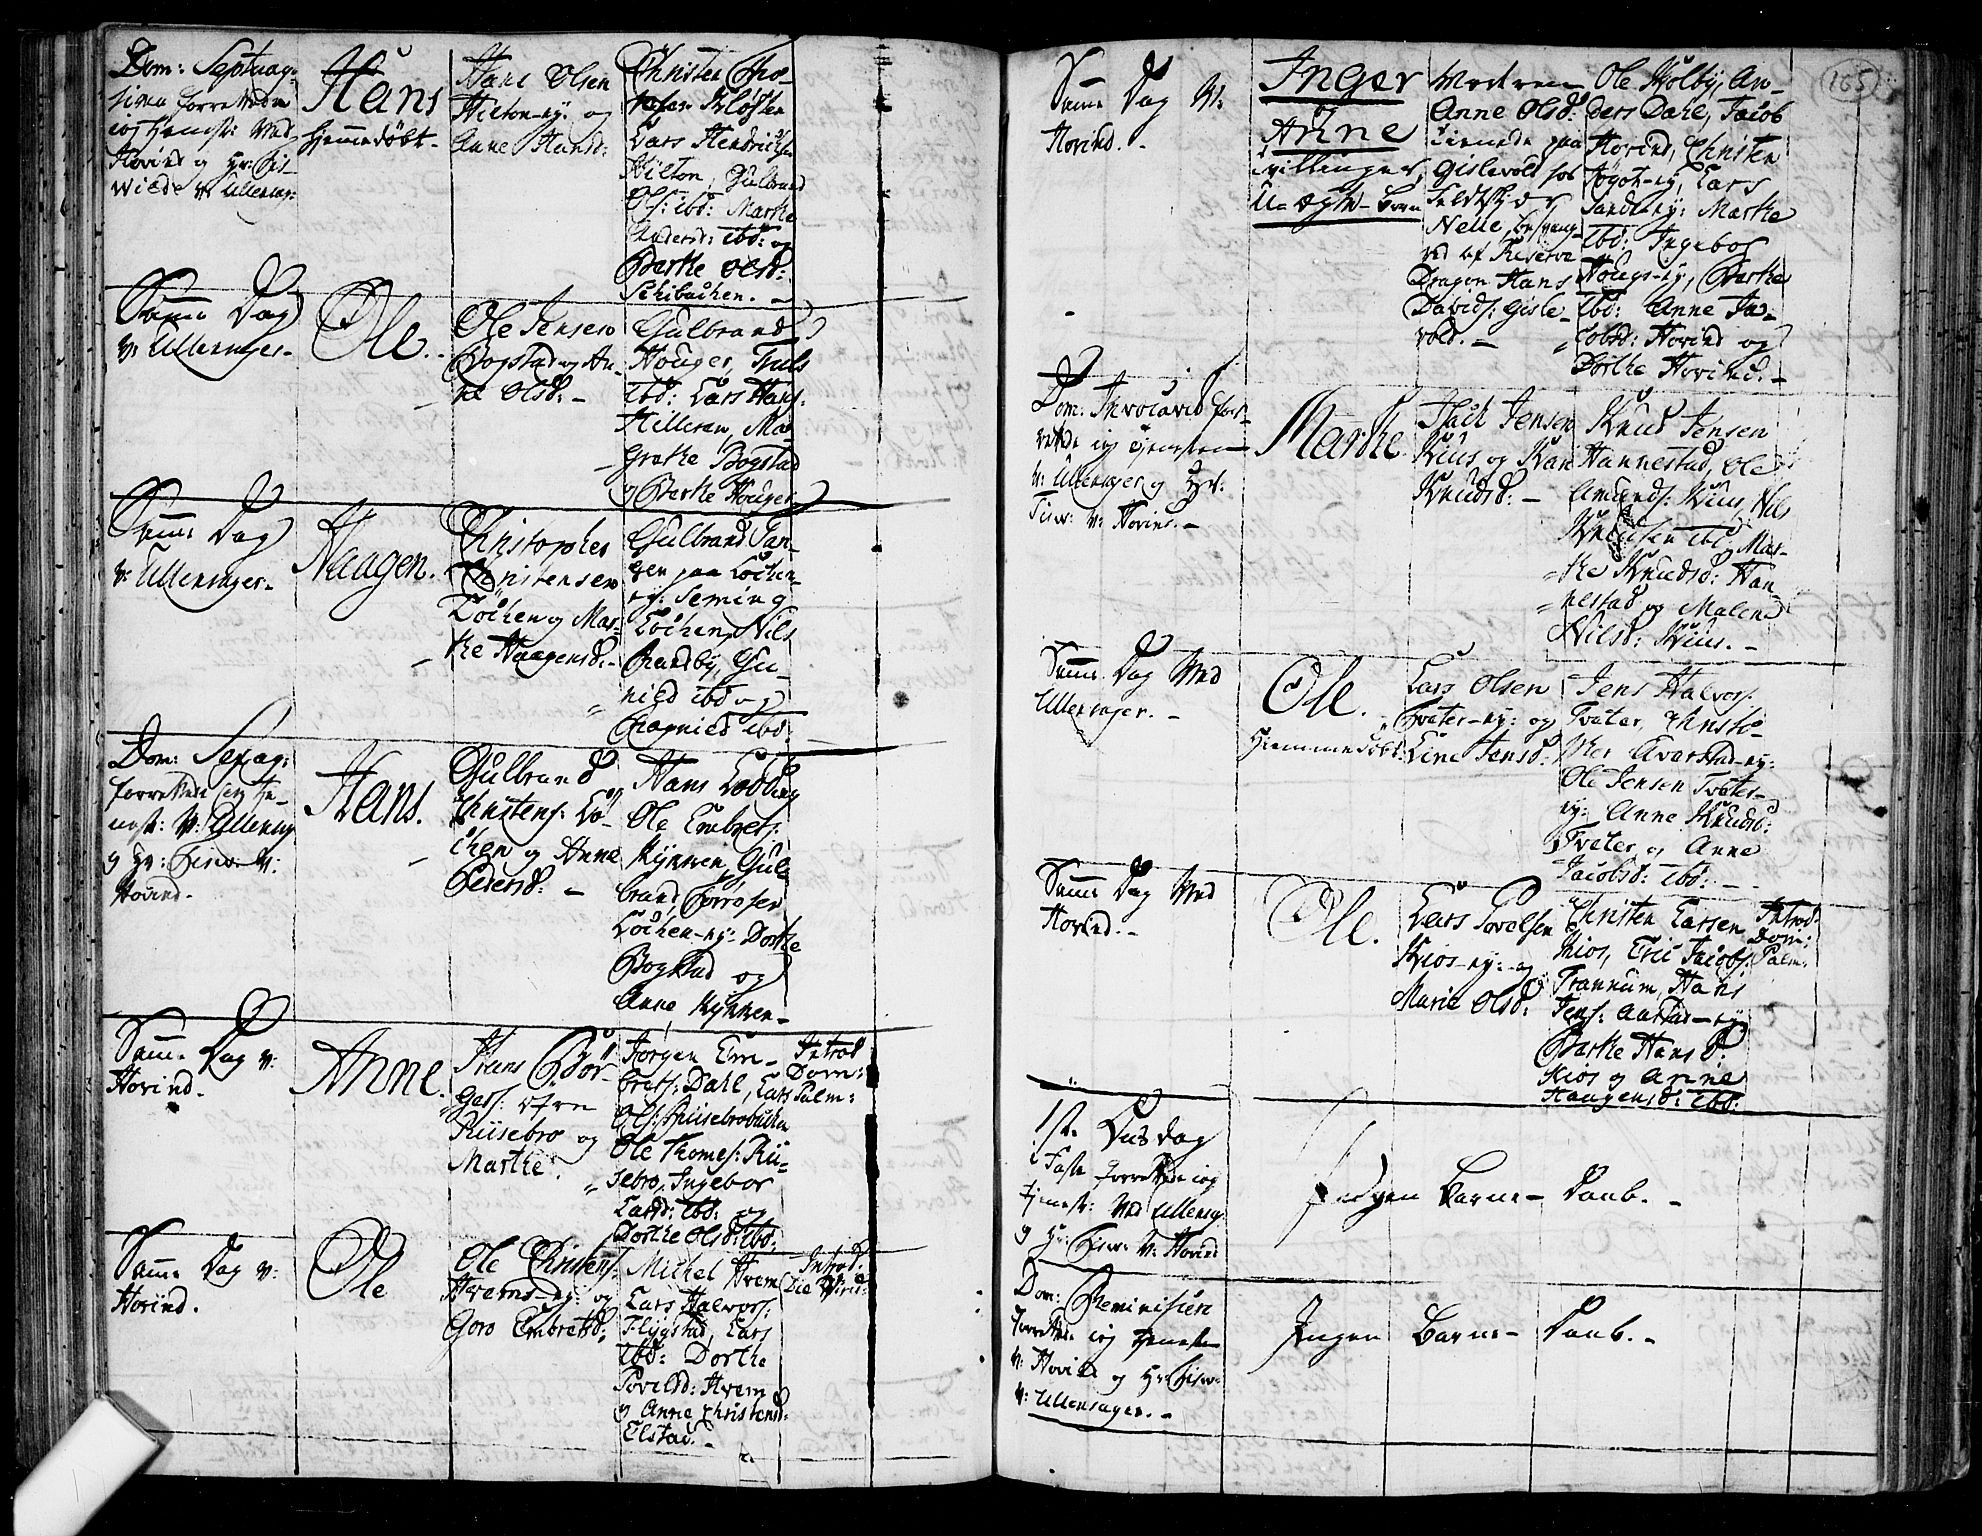 Dom: Septuag:
sima forrettede
jeg Tjenest: Ved
Hovind og Hr: Fis-
wiede v: Ullensag:
Hans
hjemmedøbt.
Hans Olsen
Hilton-ey: og
Anne Hansd:
Christen
Kløften
Lars Hendrichsen
Hilton, Gulbrand
Ols: ibd: Marthe
Andersd: ibd: og
Berthe Olsd:
Schibachen. -
Samme Dag
v: Ullensager.
Ole.
Ole Jensen
Bogstad og An-
ne Olsd: -
Gulbrand
Houger, Truls
ibd: Lars Hans:
Hilleren, Mar-
grethe Bogstad
og Berthe Houger.
Samme Dag
v: Ullensager.
Haagen.
Christopher
Christensen
Løchen og Mar-
the Haagensd: -
Gulbrand Tan-
gen paa Løchen-
ey: Seming
Løchen, Nils
Brandby, Gu-
nild ibd og
Ragnild ibd:
Dom: Sexag:
forrettede jeg tje-
nest: v: Ullensag
og Hr: Fisw: v:
Hovind.
Hans.
Gulbrand
Christens: Lø-
chen og Anne
Pedersd: -
Hans Lødding
Ole Embrets:
Kynnen, Gul-
brand
Løchen-ey: Dorthe
Bogstad og
Anne Kynnen-
Samme Dag v:
Hovind.
Anne.
Hans Bør-
gers:
Riisebro og
Marthe
Jørgen Em-
brets: Dahl, Lars
Ols: Riisebrobakken
Ole Thomes: Rii-
sebro, Ingebor
Larsd: ibd: og
Dorthe Olsd: ibd:
Introd
Dom:
Palm:
Samme Dag v:
Hovind.
Ole
Ole Christens:
Hvems-ey: og
Goro Embretsd:
Michel Hvem
Lars Halvors:
Flygstad, Lars
ibd: Dorthe
Povelsd: Hvem
og Anne Christensd:
Elstad. -
Introd.
165
Samme Dag v:
Hovind.
Inger
&
Anne
Tvillinger,
Uægte Børn
Moderen
Anne Olsd:
tienende paa
Gislevold for
Feldtskjer
Nelle, besvang-
red af Reserve
Dragon Hans
Davids: Gisle-
vold. -
Ole Holby, An-
ders Dahl, Jacob
Hovind, Christen
Lars
Sand-ey: Marthe
ibd: Ingebor
Houg-ey, Berthe
ibd: Anne Ja-
cobsd: Hovind og
Dorthe Hovind. -
Dom: Invocavit for-
rettede jeg tjenesten
v: Ullensager og Hr:
Fisw: v: Hovind. -
Marthe.
Jensen
Kius og Kari
Knudsd: -
Knud Jensen
Hannestad, Ole
Amunds: Kius, Nils
Knudsen ibd: Mar-
the Knudsd: Han-
nestad og Malene
Nilsd: Kius. -
Samme Dag Ved
Ullensager. -
Ole.
Hiemmedøbt:
Lars Olsen
Tveter-ey: og
Line Jensd:
Jens Halvors:
Tveter, Christo-
pher
Ole Jensen Tveter-
ey: Anne Knudsd:
Tveter og Anne
Jacobsd: ibd: -
Samme Dag Ved
Hovind. -
Ole.
Lars Povelsen
Kios-ey: og
Marie Olsd:
Christen Larsen
Kios, Eric Jacobs:
Trannum, Hans
Jens: Aastad-ey
Berthe Hansd:
Kios og Anne
Haagensd: ibd:
Introd
Dom:
Palm:
1ste Onsdag
i Faste forrettede jeg
tjenest: Ved Ullensag
og Hr: Fisw: v: Hovind
Ingen Barne- Daab. -
Dom: Reminiscere
forrettede jeg tjenesten
v: Hovind og Hr: Fisw:
v: Ullensager. -
Ingen Barne- Daab. -